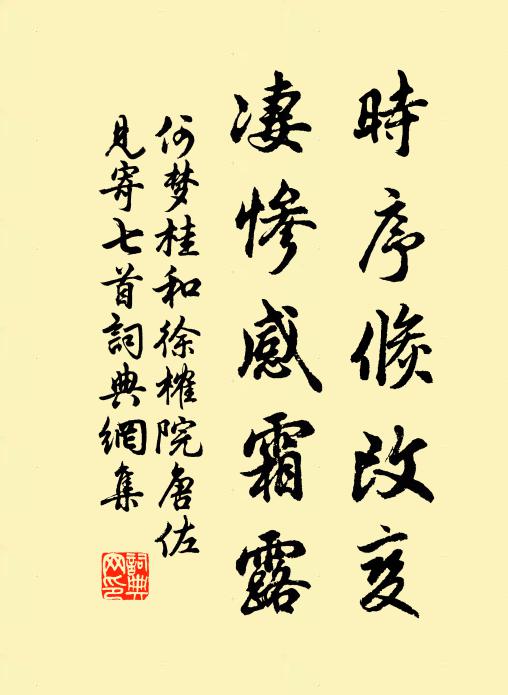 時序倏改变
凄慘感霜露
何梦桂和徐榷院唐佐
見寄七首詞典網集
詞典网印